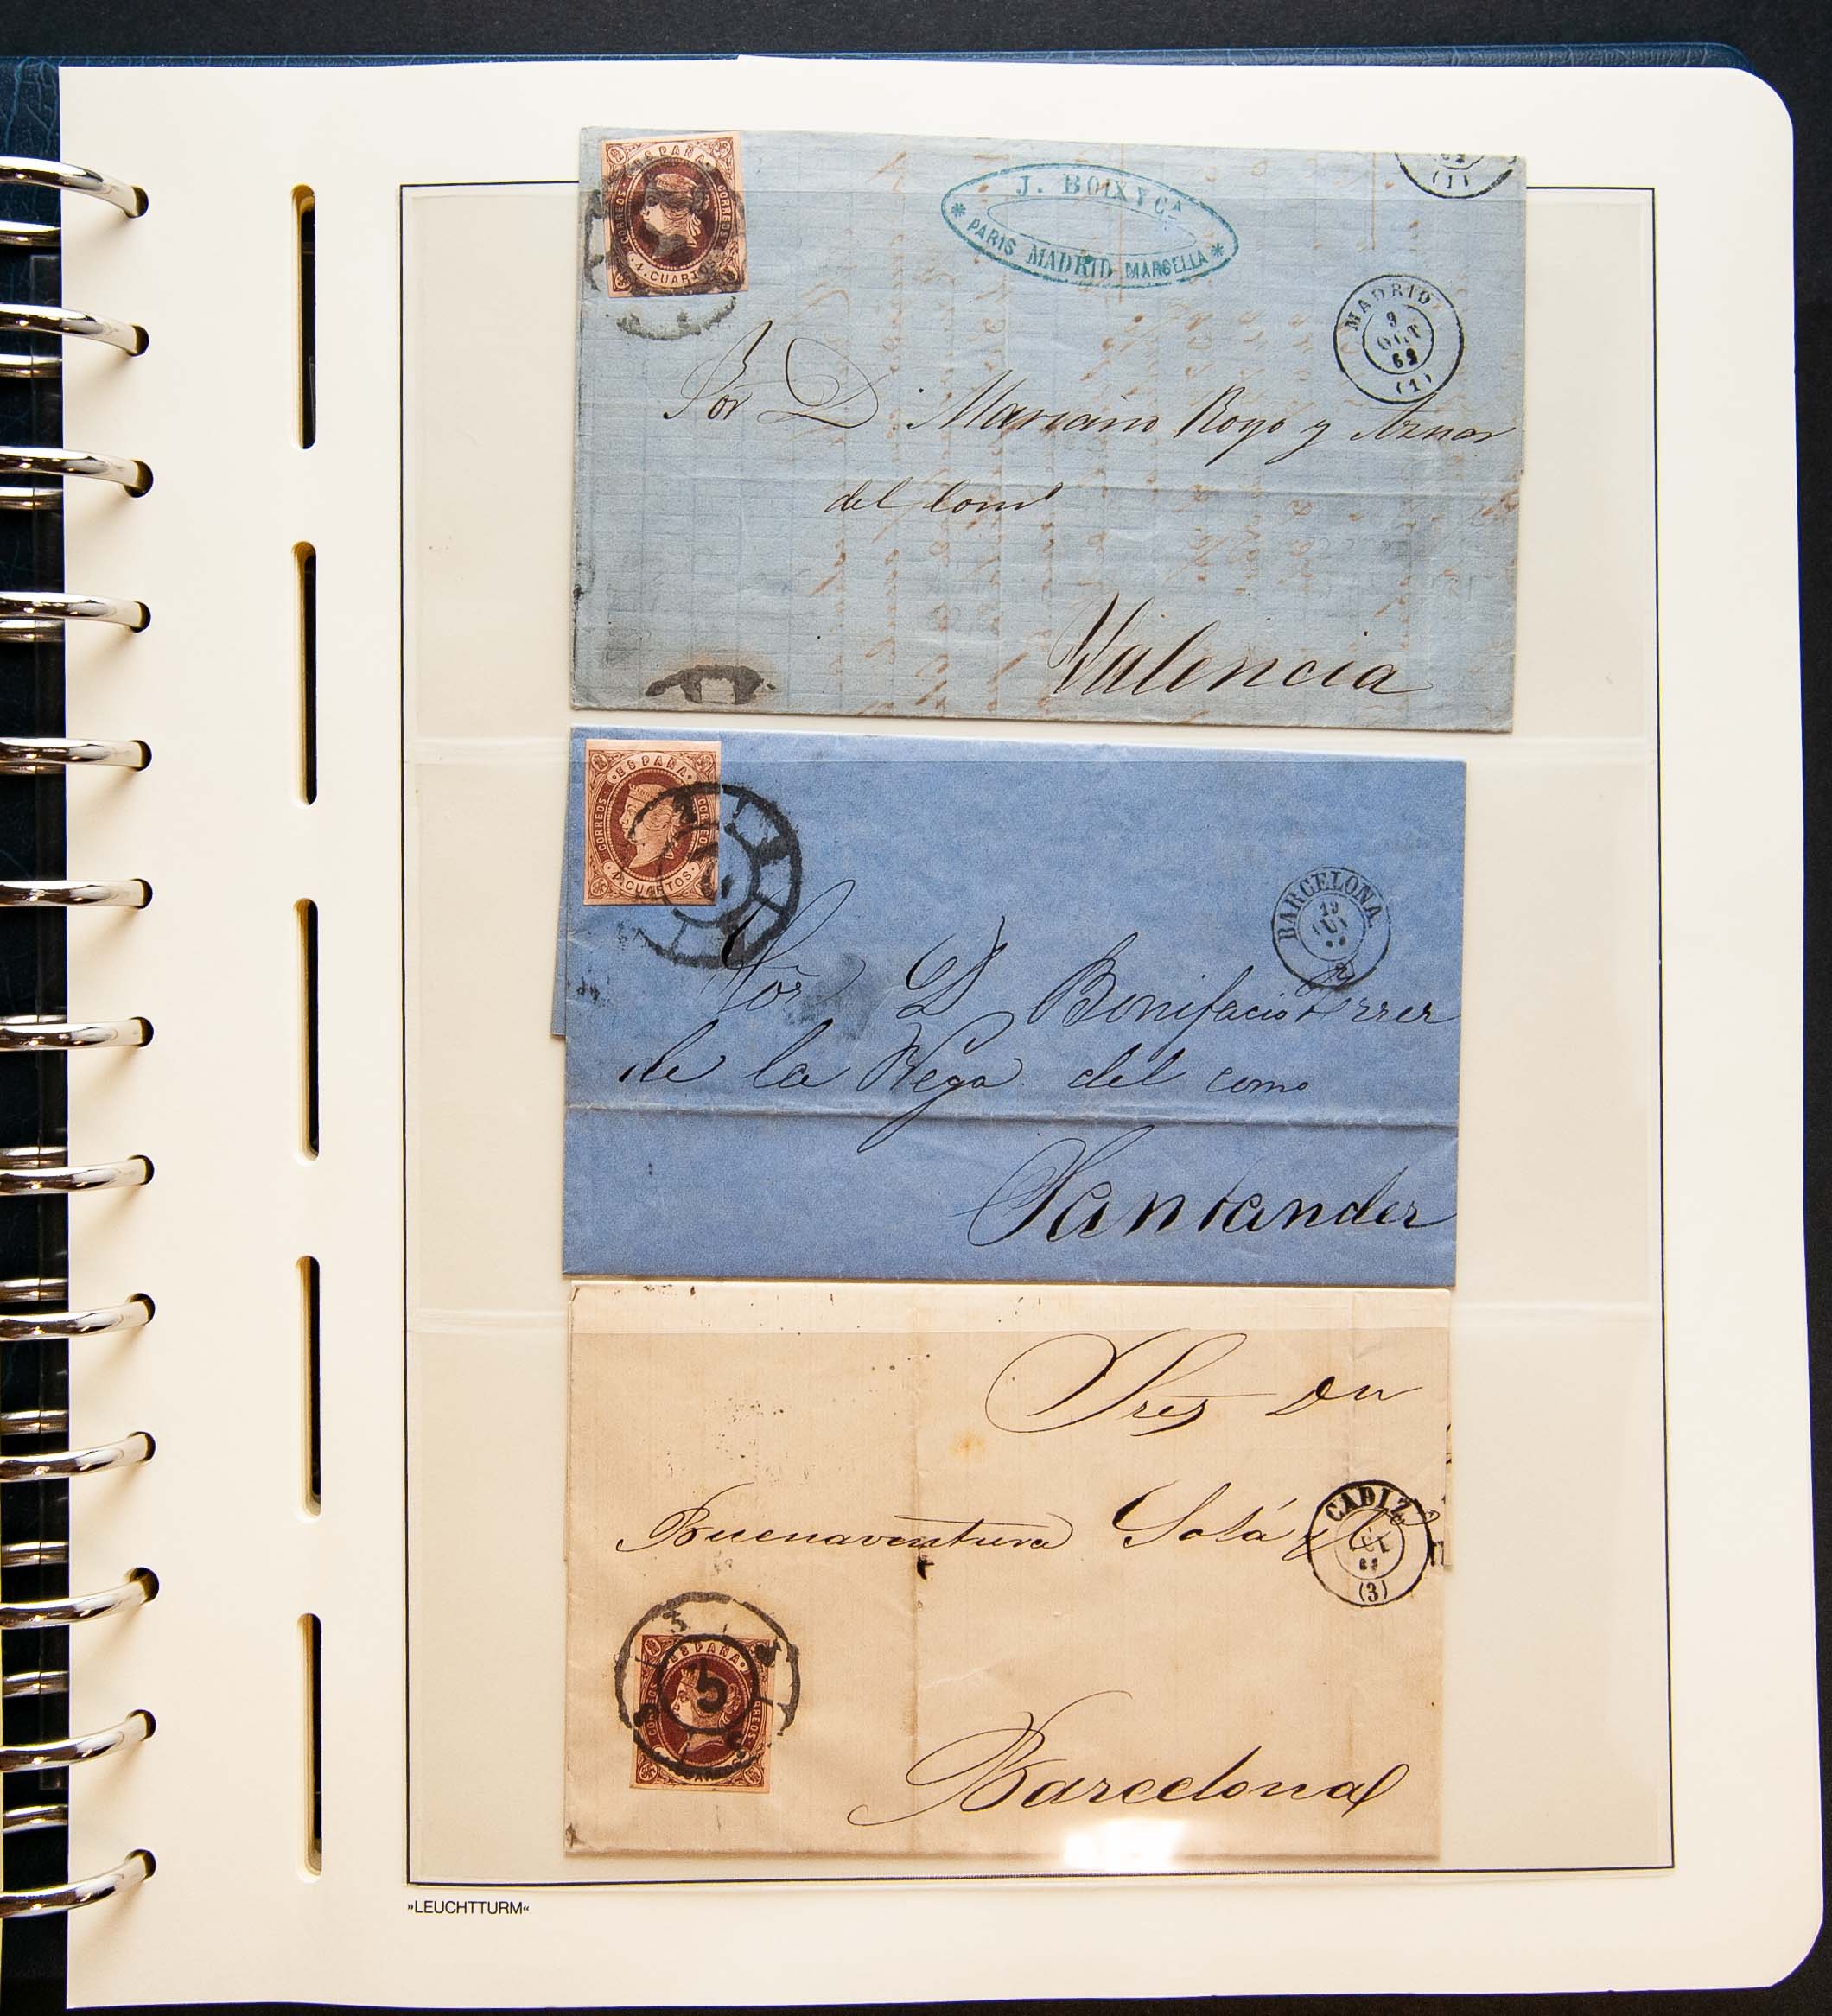 ESPAÑA
CORREOS CORREOS
4. CUARTOS
J. BOIX Y Cª
* PARIS MADRID MARSELLA *
(1)
MADRID
9
OCT
62
(1)
Sor D. Mariano Royo y Aznar
del Comº
Valencia
·ESPAÑA·
CORREOS CORREOS
4.CUARTOS.
BARCELONA
19
Sor D Bonifacio Ferrer
de la Vega del como
Santander
Sres Dn
Buenaventura Solá y Cª
CADIZ
(3)
ESPAÑA
CORREOS CORREOS
5
Barcelona
»LEUCHTTURM«